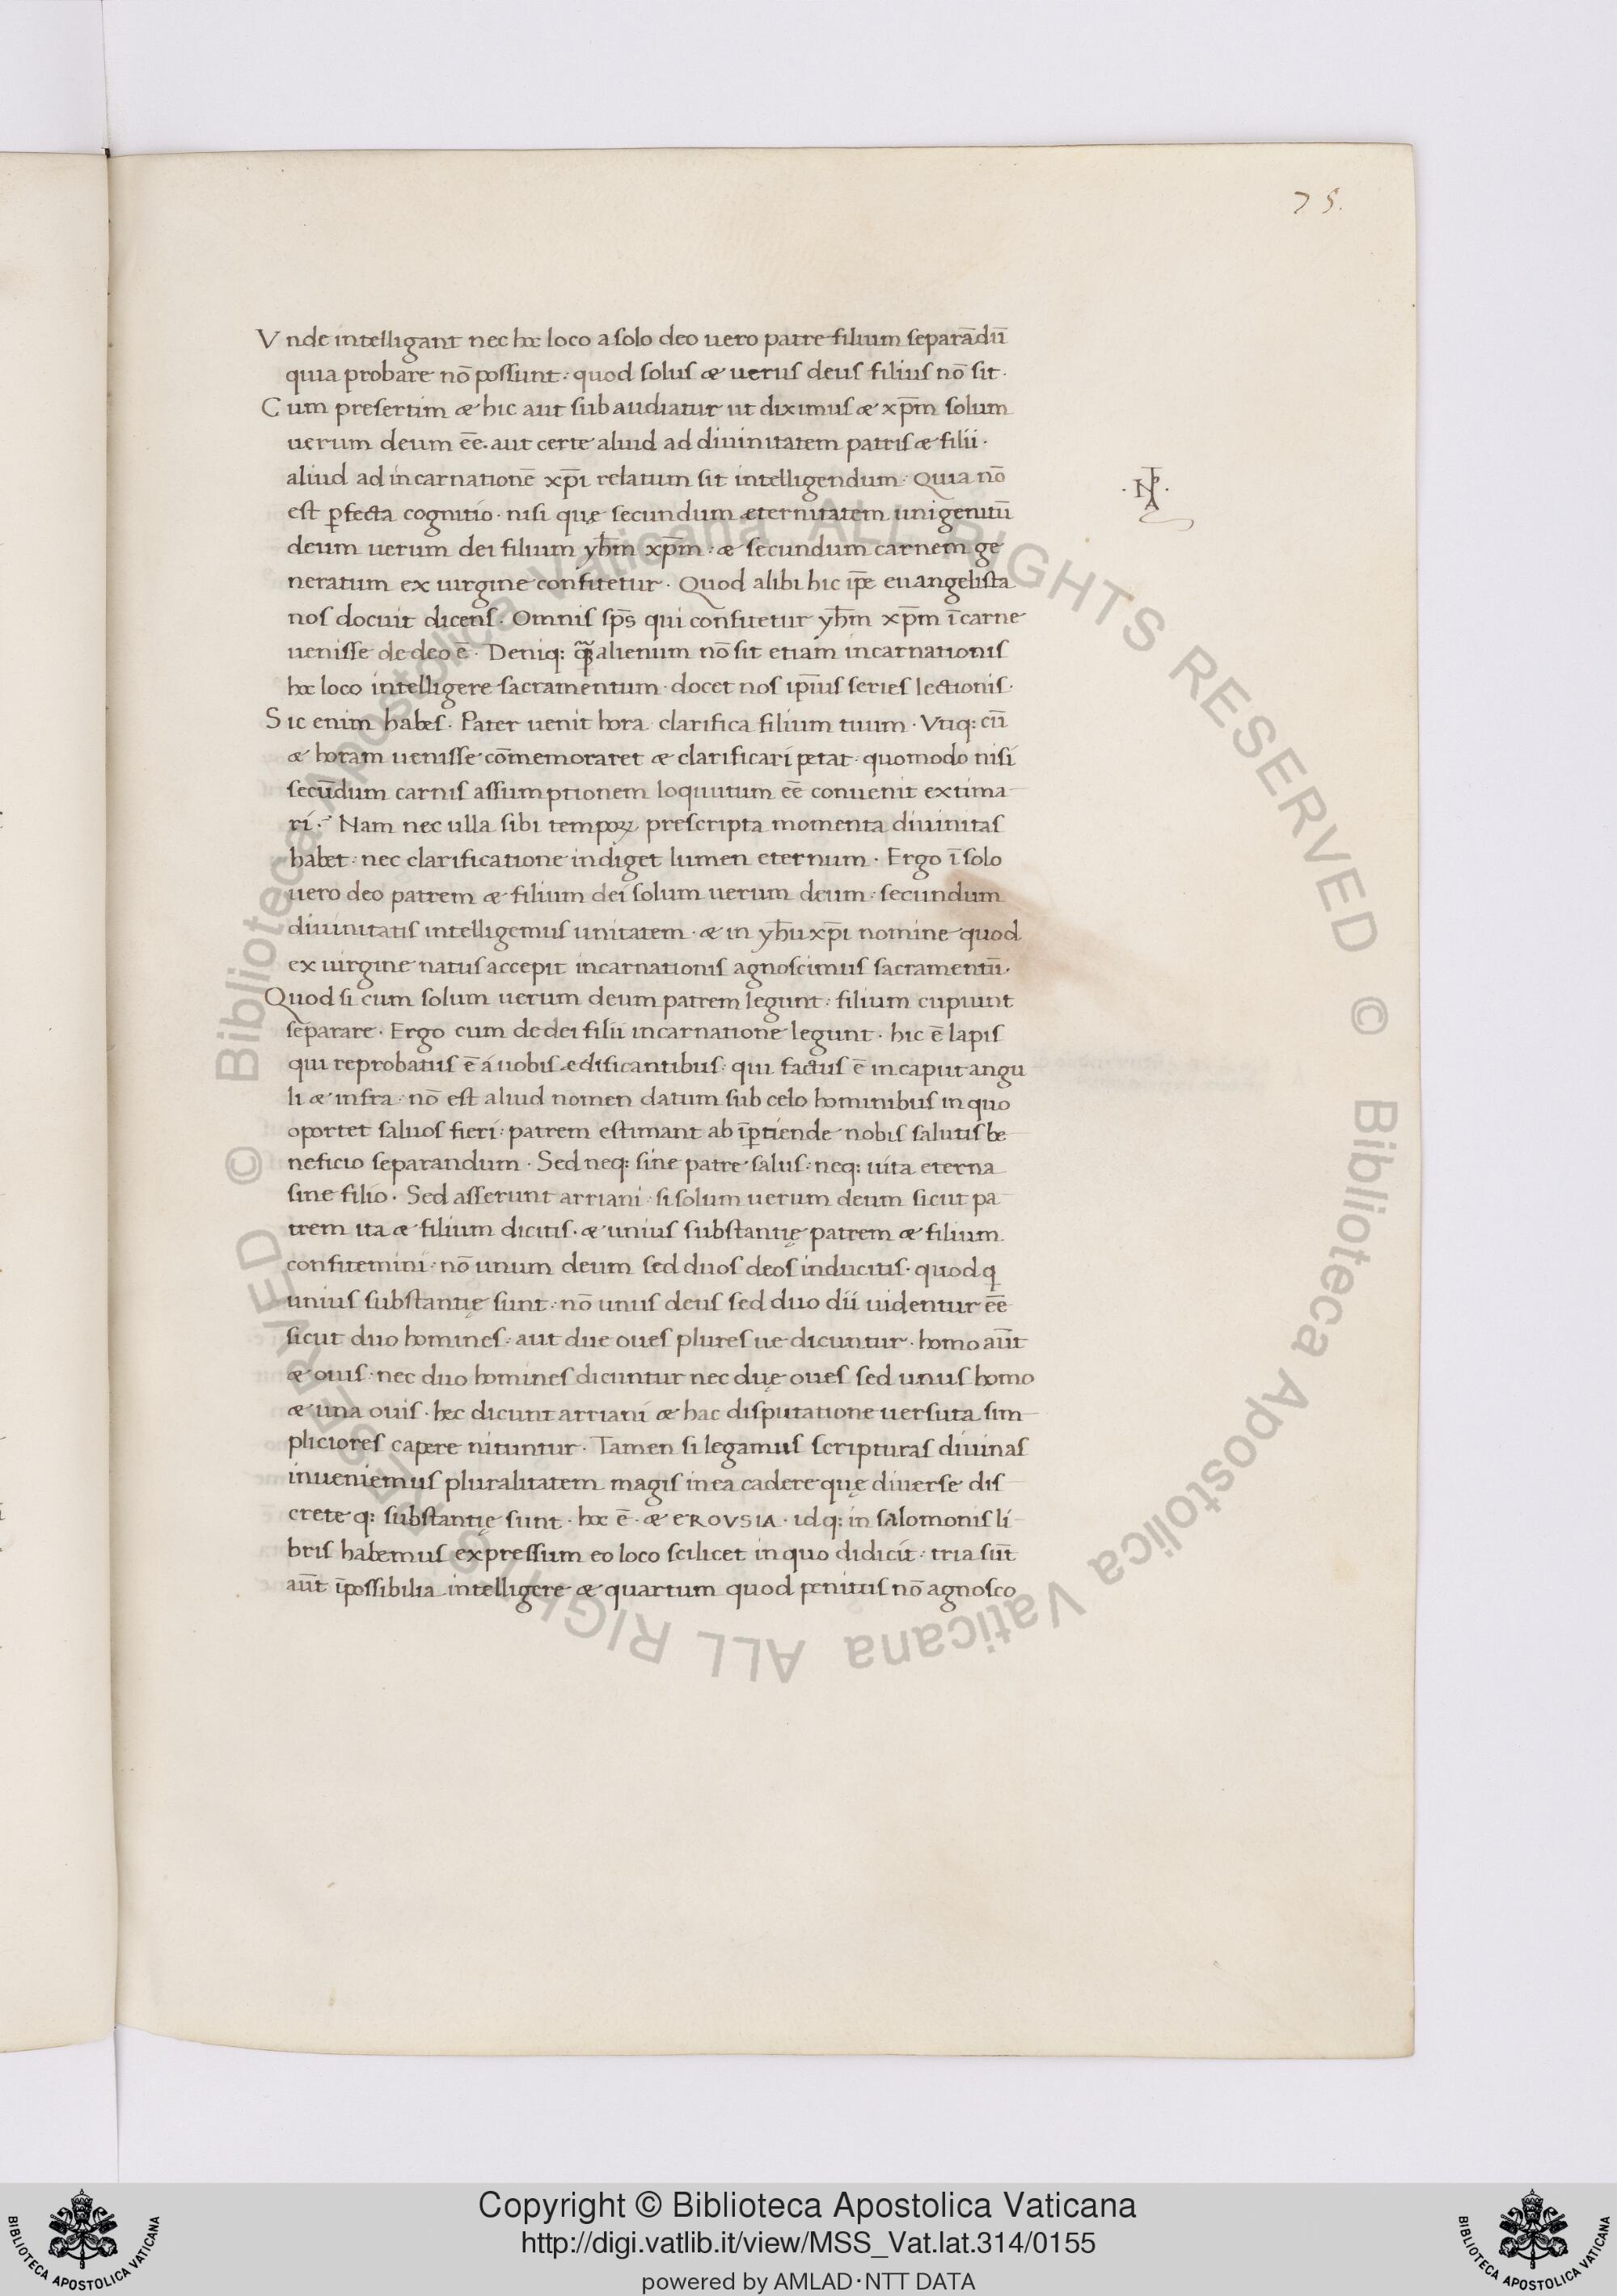 75.
Vnde intelligant nec hoc loco a solo deo uero patre filium separādū
quia probare nō possunt: quod solus æ uerus deus filius nō sit·
Cum presertim æ hic aut subaudiatur ut diximus æ xp̄m solum
uerum deum ēē· aut certe aliud ad diuinitatem patris æ filii·
aliud ad incarnationē xp̄i relatum sit intelligendum· Quia nō
est ꝑfecta cognitio· nisi quę secundum æternitatem unigenitū
deum uerum dei filium yh̄m xp̄m· æ secundum carnem ge
neratum ex uirgine confitetur· Quod alibi hic ip̄e euangelista
nos docuit dicens· Omnis sp̄s qui confitetur yh̄m xp̄m ī carne
uenisse de deo ē· Deniq: alienum nō sit etiam incarnationis
hoc loco intelligere sacramentum· docet nos ip̄ius series lectionis·
Sic enim habes· Pater uenit hora· clarifica filium tuum· Vtiq: cū
æ horam uenisse cōmemoraret æ clarificari petat· quomodo nisi
secūdum carnis assumptionem loquutum ēē conuenit extima
ri· Nam nec ulla sibi tempoꝝ prescripta momenta diuinitas
habet: nec clarificatione indiget lumen eternum· Ergo ī solo
uero deo patrem æ filium dei solum uerum deum: secundum
diuinitatis intelligemus unitatem· æ in yh̄u xp̄i nomine quod
ex uirgine natus accepit incarnationis agnoscimus sacramentū·
Quod si cum solum uerum deum patrem legunt: filium cupiunt
separare· Ergo cum de dei filii incarnatione legunt· hic ē lapis
qui reprobatus ē á uobis edificantibus: qui factus ē in caput angu
li æ infra· nō est aliud nomen datum sub celo hominibus in quo
oportet saluos fieri: patrem estimant ab īꝑtiende nobis salutis be
neficio separandum· Sed neq: sine patre salus: neq: uita eterna
sine filio· Sed asserunt arriani· si solum uerum deum sicut pa
trem ita æ filium dicitis· æ unius substantię patrem æ filium
confitemini· nō unum deum sed duos deos inducitis· quod q
unius substantię sunt: nō unus deus sed duo dii uidentur ēē
sicut duo homines: aut due oues plures ue dicuntur· homo aūt
æ ouis· nec duo homines dicuntur nec duę oues sed unus homo
æ una ouis· hec dicunt arriani æ hac disputatione uersuta sim
pliciores capere nituntur· Tamen si legamus scripturas diuinas
inueniemus pluralitatem magis in ea cadere quę diuerse dis
crete q: substantię sunt· hoc ē· æ EROVSIA· id q: in salomonis li
bris habemus expressum eo loco scilicet in quo didicit: tria sūt
aūt īpossibilia intelligere æ quartum quod penitus nō agnosco
© Biblioteca Apostolica Vaticana ALL RIGHTS RESERVED © Biblioteca Apostolica Vaticana ALL RIGHTS RESERVED
Copyright © Biblioteca Apostolica Vaticana
http://digi.vatlib.it/view/MSS_Vat.lat.314/0155
powered by AMLAD·NTT DATA
BIBLIOTECA APOSTOLICA VATICANA
BIBLIOTECA APOSTOLICA VATICANA